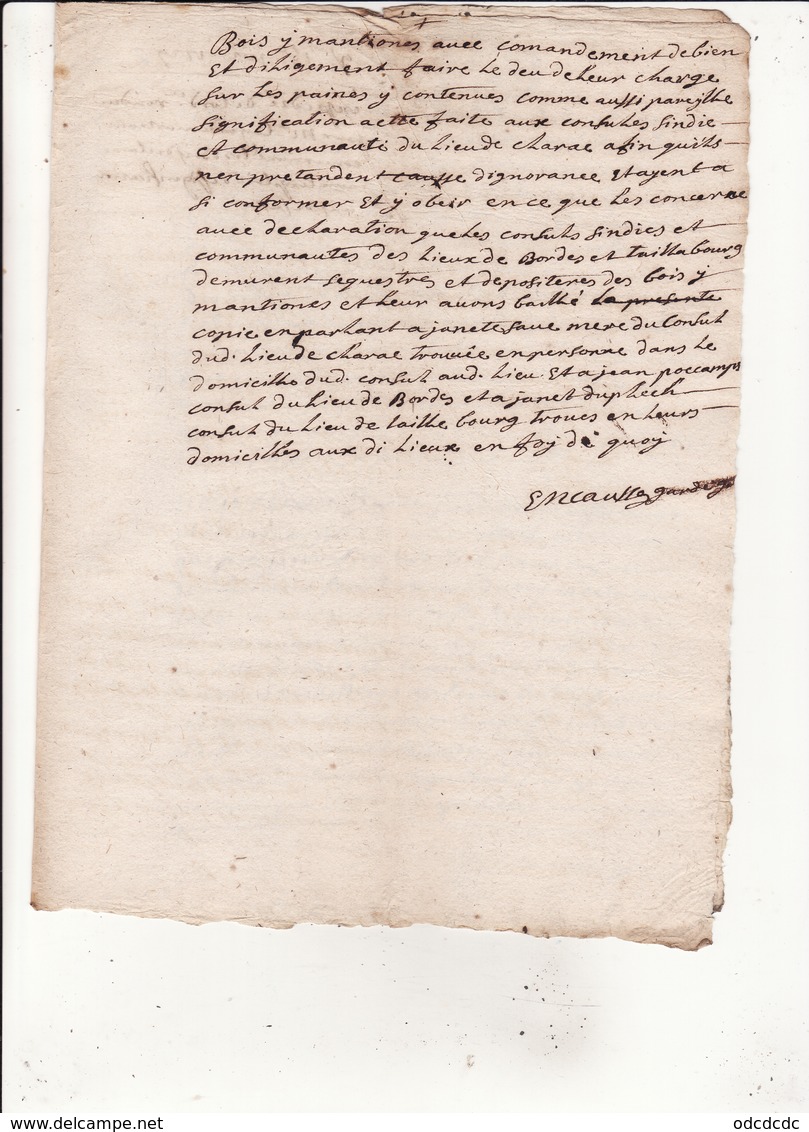 Bois y mantiones avec comandement de bien
Et diligement faire le deu de leur charge
sur les paines y contenues comme aussi pareylhe
signification a ette faite aux consules sindic
et communauté du lieu de charac afin quils
nen pretandent causse dignorance Et ayent a
si conformer Et y obeir en ce que les concerne
avec declaration que les consuls sindics et
communautes des lieux de Bordes et taillabourg
demurent sequestres et depositeres des bois y
mantiones et leur avons baillé la presente
copie en parlant a janete saue mere du Consul
dud. lieu de charac trouvée en personne dans le
domicille dud. consul aud. lieu. Et a jean poccamps
consul du lieu de Bordes et a janet duplech
consul du lieu de taille bourg trouves en leurs
domicilles aux di lieux en foy de quoy
Encausse garde
delcampe.net
odcdcdc